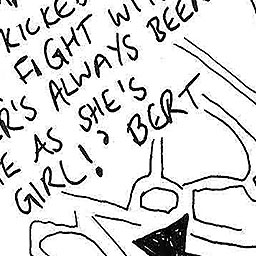 KICKED
FIGHT WIT
R'S ALWAYS BEEN
E AS SHE'S
GIRL!? BERT